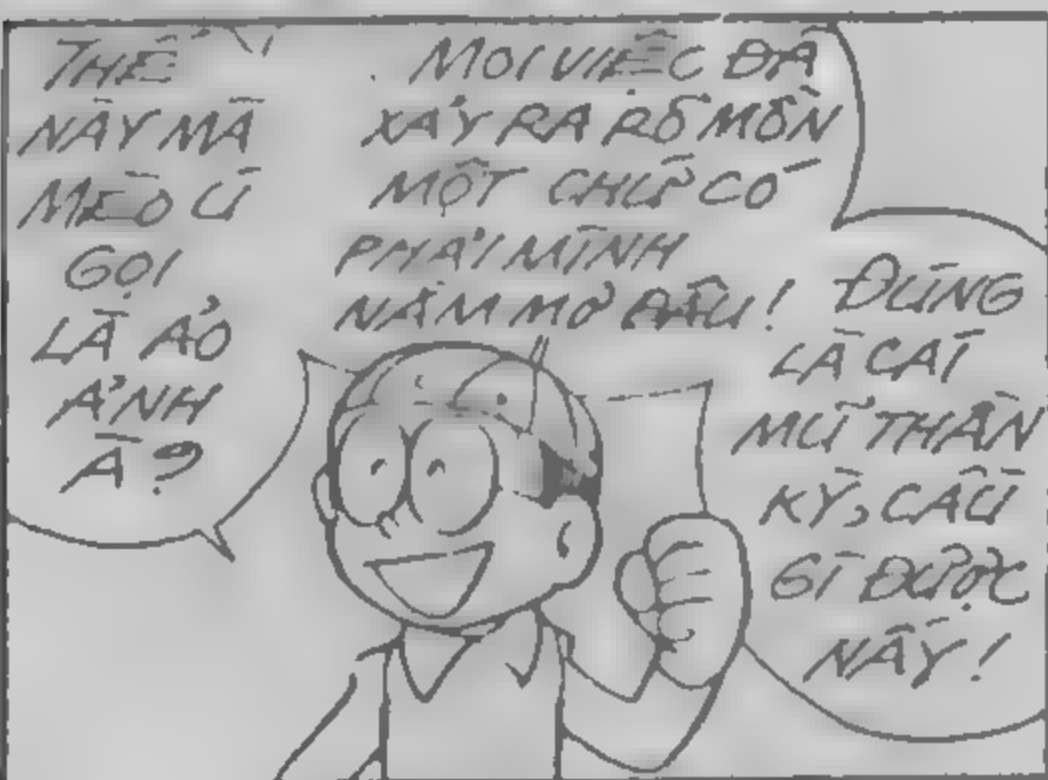 THẾ
NÀY MÀ
MÈO Ú
GỌI
LÀ ẢO
ẢNH
À?
MỌI VIỆC ĐÃ
XẢY RA RÕ MỒN
MỘT CHỨ CÓ
PHẢI MÌNH
NẰM MƠ ĐÂU!
ĐÚNG
LÀ CÁI
MŨ THẦN
KỲ, CẦU
GÌ ĐƯỢC
NẤY!